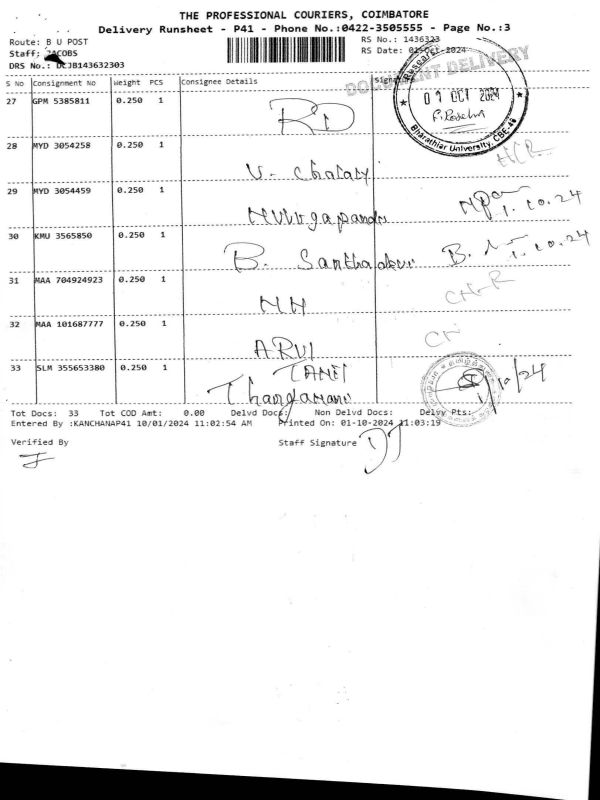 THE PROFESSIONAL COURIERS, COIMBATORE
Delivery Runsheet - P41 - Phone No.:0422-3505555 - Page No.:3
Route: B U POST
RS No.: 1436323
Staff: JACOBS
RS Date: 01-Oct-2024
DRS No.: DCJB143632303
DOCUMENT DELIVERY
S No Consignment No Weight PCS Consignee Details Sign
Research
01 OCT 2024
Bharathiar University, CBE-46
27 GPM 5385811 0.250 1 RD
28 MYD 3054258 0.250 1
V. Chalapy
29 MYD 3054459 0.250 1
1.10.24
30 KMU 3565850 0.250 1
B. Santhadevi B. 1.10.24
31 MAA 704924923 0.250 1
MH
32 MAA 101687777 0.250 1
ARVI
33 SLM 355653380 0.250 1
TAMIL
Thangamani
1/10/24
Tot Docs: 33 Tot COD Amt: 0.00 Delvd Docs: Non Delvd Docs: Delvy Pts:
Entered By :KANCHANAP41 10/01/2024 11:02:54 AM Printed On: 01-10-2024 11:03:19
Verified By
Staff Signature